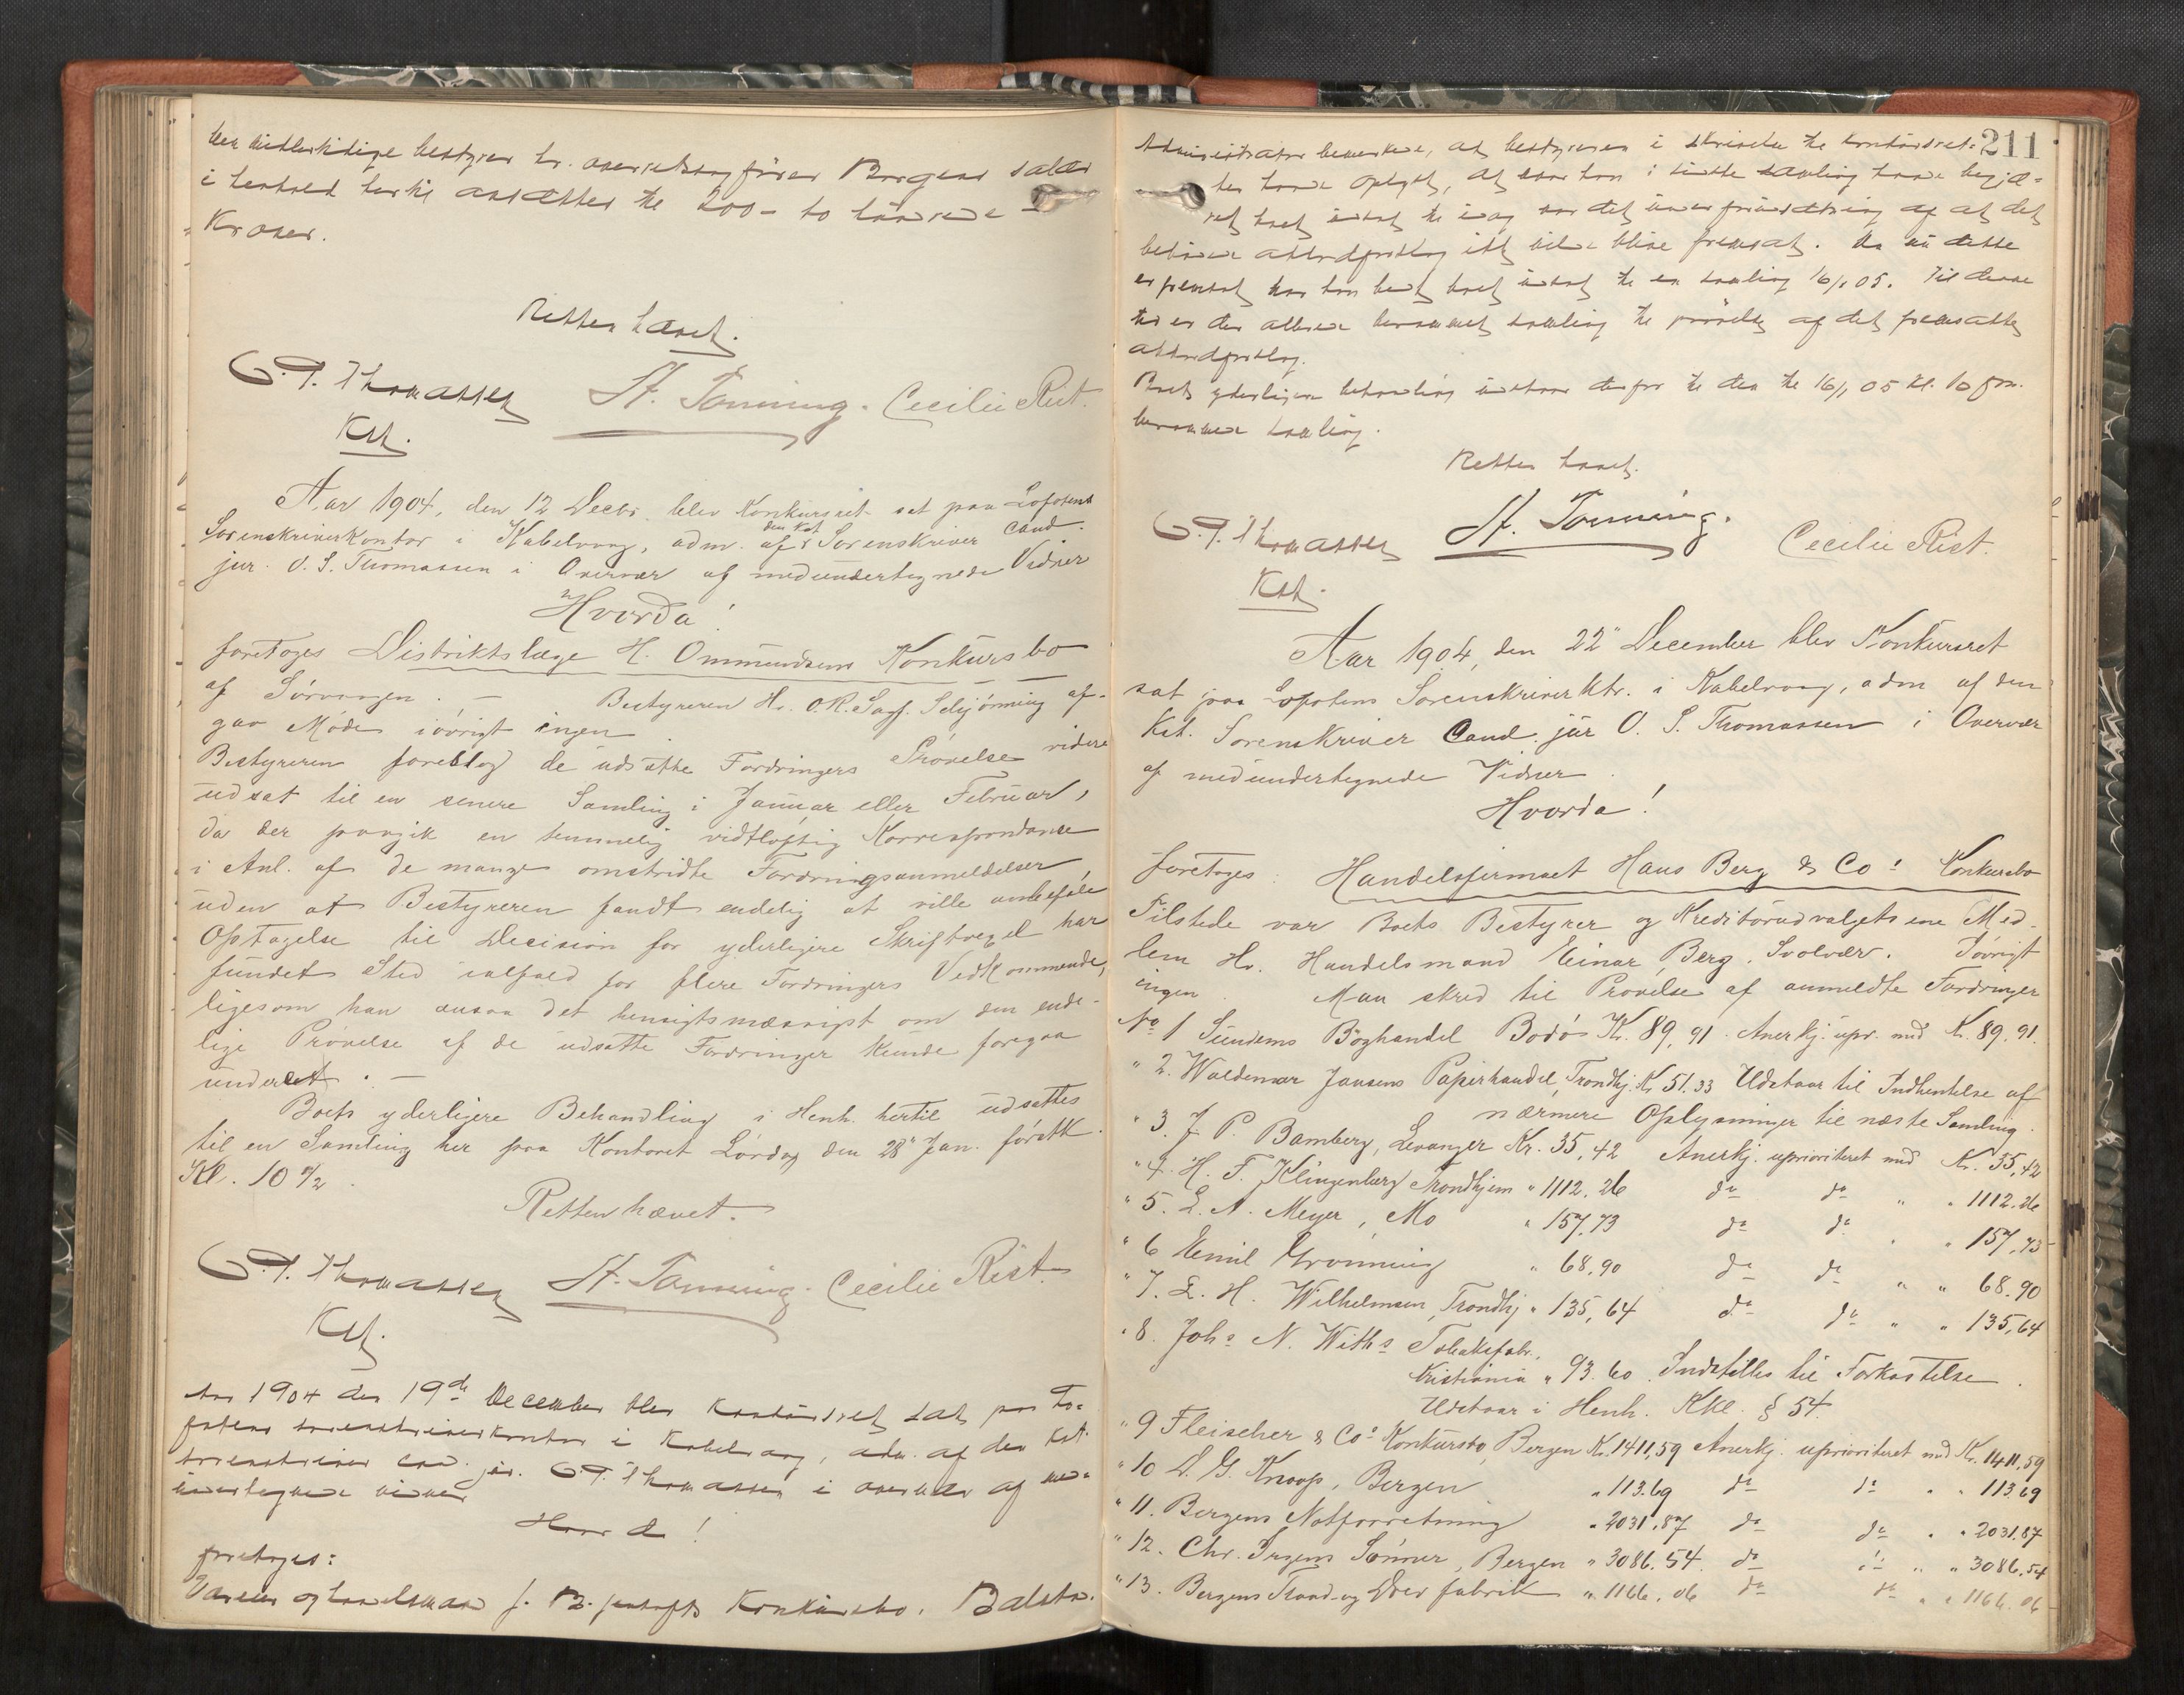 den midlertidige bestyrer hr. overretssagfører Borgens salær
i henhold hertil ansættes til 200 - to hundrede -
Kroner.
Retten hævet.
O.S. Thomassen St. Tønning. Cecilie Rist.
Kst.
Aar 1904, den 12 Decbr. blev Konkursret sat paa Lofotens
Sorenskriverkontor i Kabelvaag, adm. af den Kst. Sorenskriver Cand.
jur. O. S. Thomassen i Overvær af medundertegnede Vidner
Hvorda!
foretoges Distriktslæge H. Ommundsens Konkursbo
af Sørvaagen. - Bestyreren Hr. O.R.Sagf. Schjønning af-
gav Møde iøvrigt ingen.
Bestyreren foreslog de udsatte Fordringers Prøvelse videre
udsat til en senere Samling i Januar eller Februar,
da der paagik en temmelig vidtløftig Korrespondance
i Anl. af de mange omstridte Fordringsanmeldelser
uden at Bestyreren fandt endelig at ville anbefale
Optagelse til Decision før yderligere Skriftvexel har
fundet Sted ialfald for flere Fordringers Vedkommende,
ligesom han ansaa det hensigtsmæssigst om den ende-
lige Prøvelse af de udsatte Fordringer kunde foregaa
underet. -
Boets yderligere Behandling i Henh. hertil udsattes
til en Samling her paa Kontoret Lørdag den 28" Jan. førstk.
Kl. 10 1/2.
Retten hævet.
O.S. Thomassen St. Tønning. Cecilie Rist.
Kst.
Aar 1904 den 19de December blev konkursret sat paa Lo-
fotens sorenskriverkontor i Kabelvaag, adm. af den kst.
sorenskriver cand. jur. O.S. Thomassen i overvær af med-
undertegnede vidner
Hvorda!
foretoges:
Væreier og handelsmand J. B. Konkursbo, Balstad.
211
Administrator bemerkede, at bestyreren i skrivelse til konkursret-
ten havde oplyst, at naar han i sidste samling havde begjæ-
ret boet udsat til idag var det under forudsætning af at det
bebudede akkordforslag ikke vilde blive fremsat. Da nu dette
er fremsat har han bedt boet udsat til en samling 16/1 05. Til denne
tid er der allerede berammet samling til prøvelse af det fremsatte
akkordforslag.
Boets yderligere behandling udstaar derfor til den til 16/1 05 kl. 10 fm.
berammede samling.
Retten hævet.
O.S. Thomassen St. Tønning. Cecilie Rist.
Kst.
Aar 1904, den 22" December blev Konkursret
sat paa Lofotens Sorenskriverktr. i Kabelvaag, adm af den
Kst. Sorenskriver Cand. jur O. S. Thomassen i Overvær
af medundertegnede Vidner.
Hvorda!
foretoges: Handelsfirmaet Hans Berg & Co's Konkursbo
Tilstede var Boets Bestyrer og Kreditorudvalgets ene Med-
lem Hr. Handelsmand Einar Berg, Svolvær. Iøvrigt
ingen. Man skred til Prøvelse af anmeldte Fordringer
No 1 Sundems Boghandel Bodø Kr. 89,91. Anerkj. upr. med Kr. 89.91.
" 2. Waldemar Jansens Papirhandel, Trondhj. Kr. 51.33 Udstaar til Indhentelse af
nærmere Oplysninger til næste Samling.
" 3. J. P. Bamberg, Levanger Kr. 35,42 Anerkj. uprioriteret med Kr. 35,42
" 4. H. F. Klingenberg Trondhjem " 1112.26 do do " " 1112.26
" 5. L. A. Meyer, Mo " 157,73 do do " " 157,73
" 6 Emil Grønning " 68,90 do do " " 68.90
" 7. L. H. Wilhelmsen, Trondhj " 135,64 do do " " 135,64
" 8. Johs N. Withs Tobaksfabr.,
Kristiania " 93.60. Indstilles til Forkastelse.
Udstaar i Henh. Kkl. § 54.
" 9 Fleischer & Co's Konkursbo, Bergen Kr. 1411,59 Anerkj. uprioriteret med Kr. 1411.59
" 10 L. G. Knoop, Bergen " 113.69 do do " " 113.69
" 11. Bergens Notforretning " 2031.87 do do " " 2031.87
" 12. Chr. Irgens Sønner, Bergen " 3086.54 do do " " 3086,54
" 13. Bergens Traad- og Drev fabrik " 1166.06 do do " " 1166.06